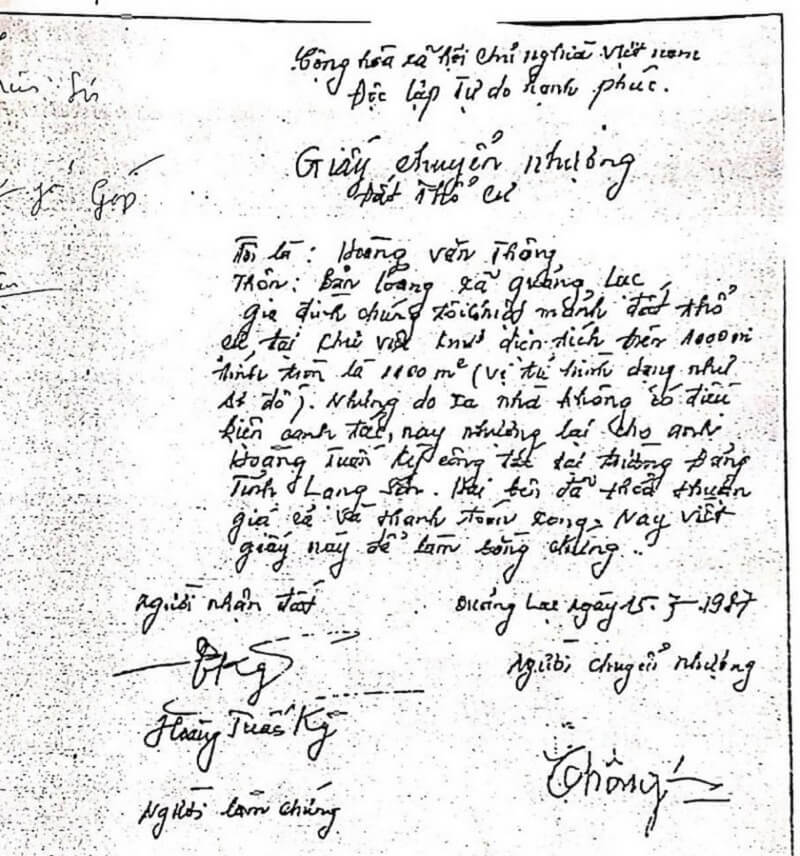 Cộng hòa xã hội chủ nghĩa Việt nam
Độc lập Tự do hạnh phúc.
Giấy chuyển nhượng
Đất Thổ cư
Tôi là : Hoàng Văn Thông
Thôn : Bản Loỏng xã Quảng Lạc
gia đình chúng tôi có 1 mảnh đất thổ
cư tại khu vực diện tích trên 1000 m
tính tròn là 1100 m² (vị trí hình dạng như
sơ đồ). Nhưng do xa nhà không có điều
kiện canh tác, nay nhượng lại cho anh
Hoàng Tuấn Kỳ công tác tại trường Đảng
Tỉnh Lạng Sơn. Hai bên đã thoả thuận
giá cả và thanh toán xong. Nay viết
giấy này để làm bằng chứng..
Người nhận đất
Quảng Lạc ngày 15. 1987
Người chuyển nhượng
Hoàng Tuấn Kỳ
Thông
Người làm chứng